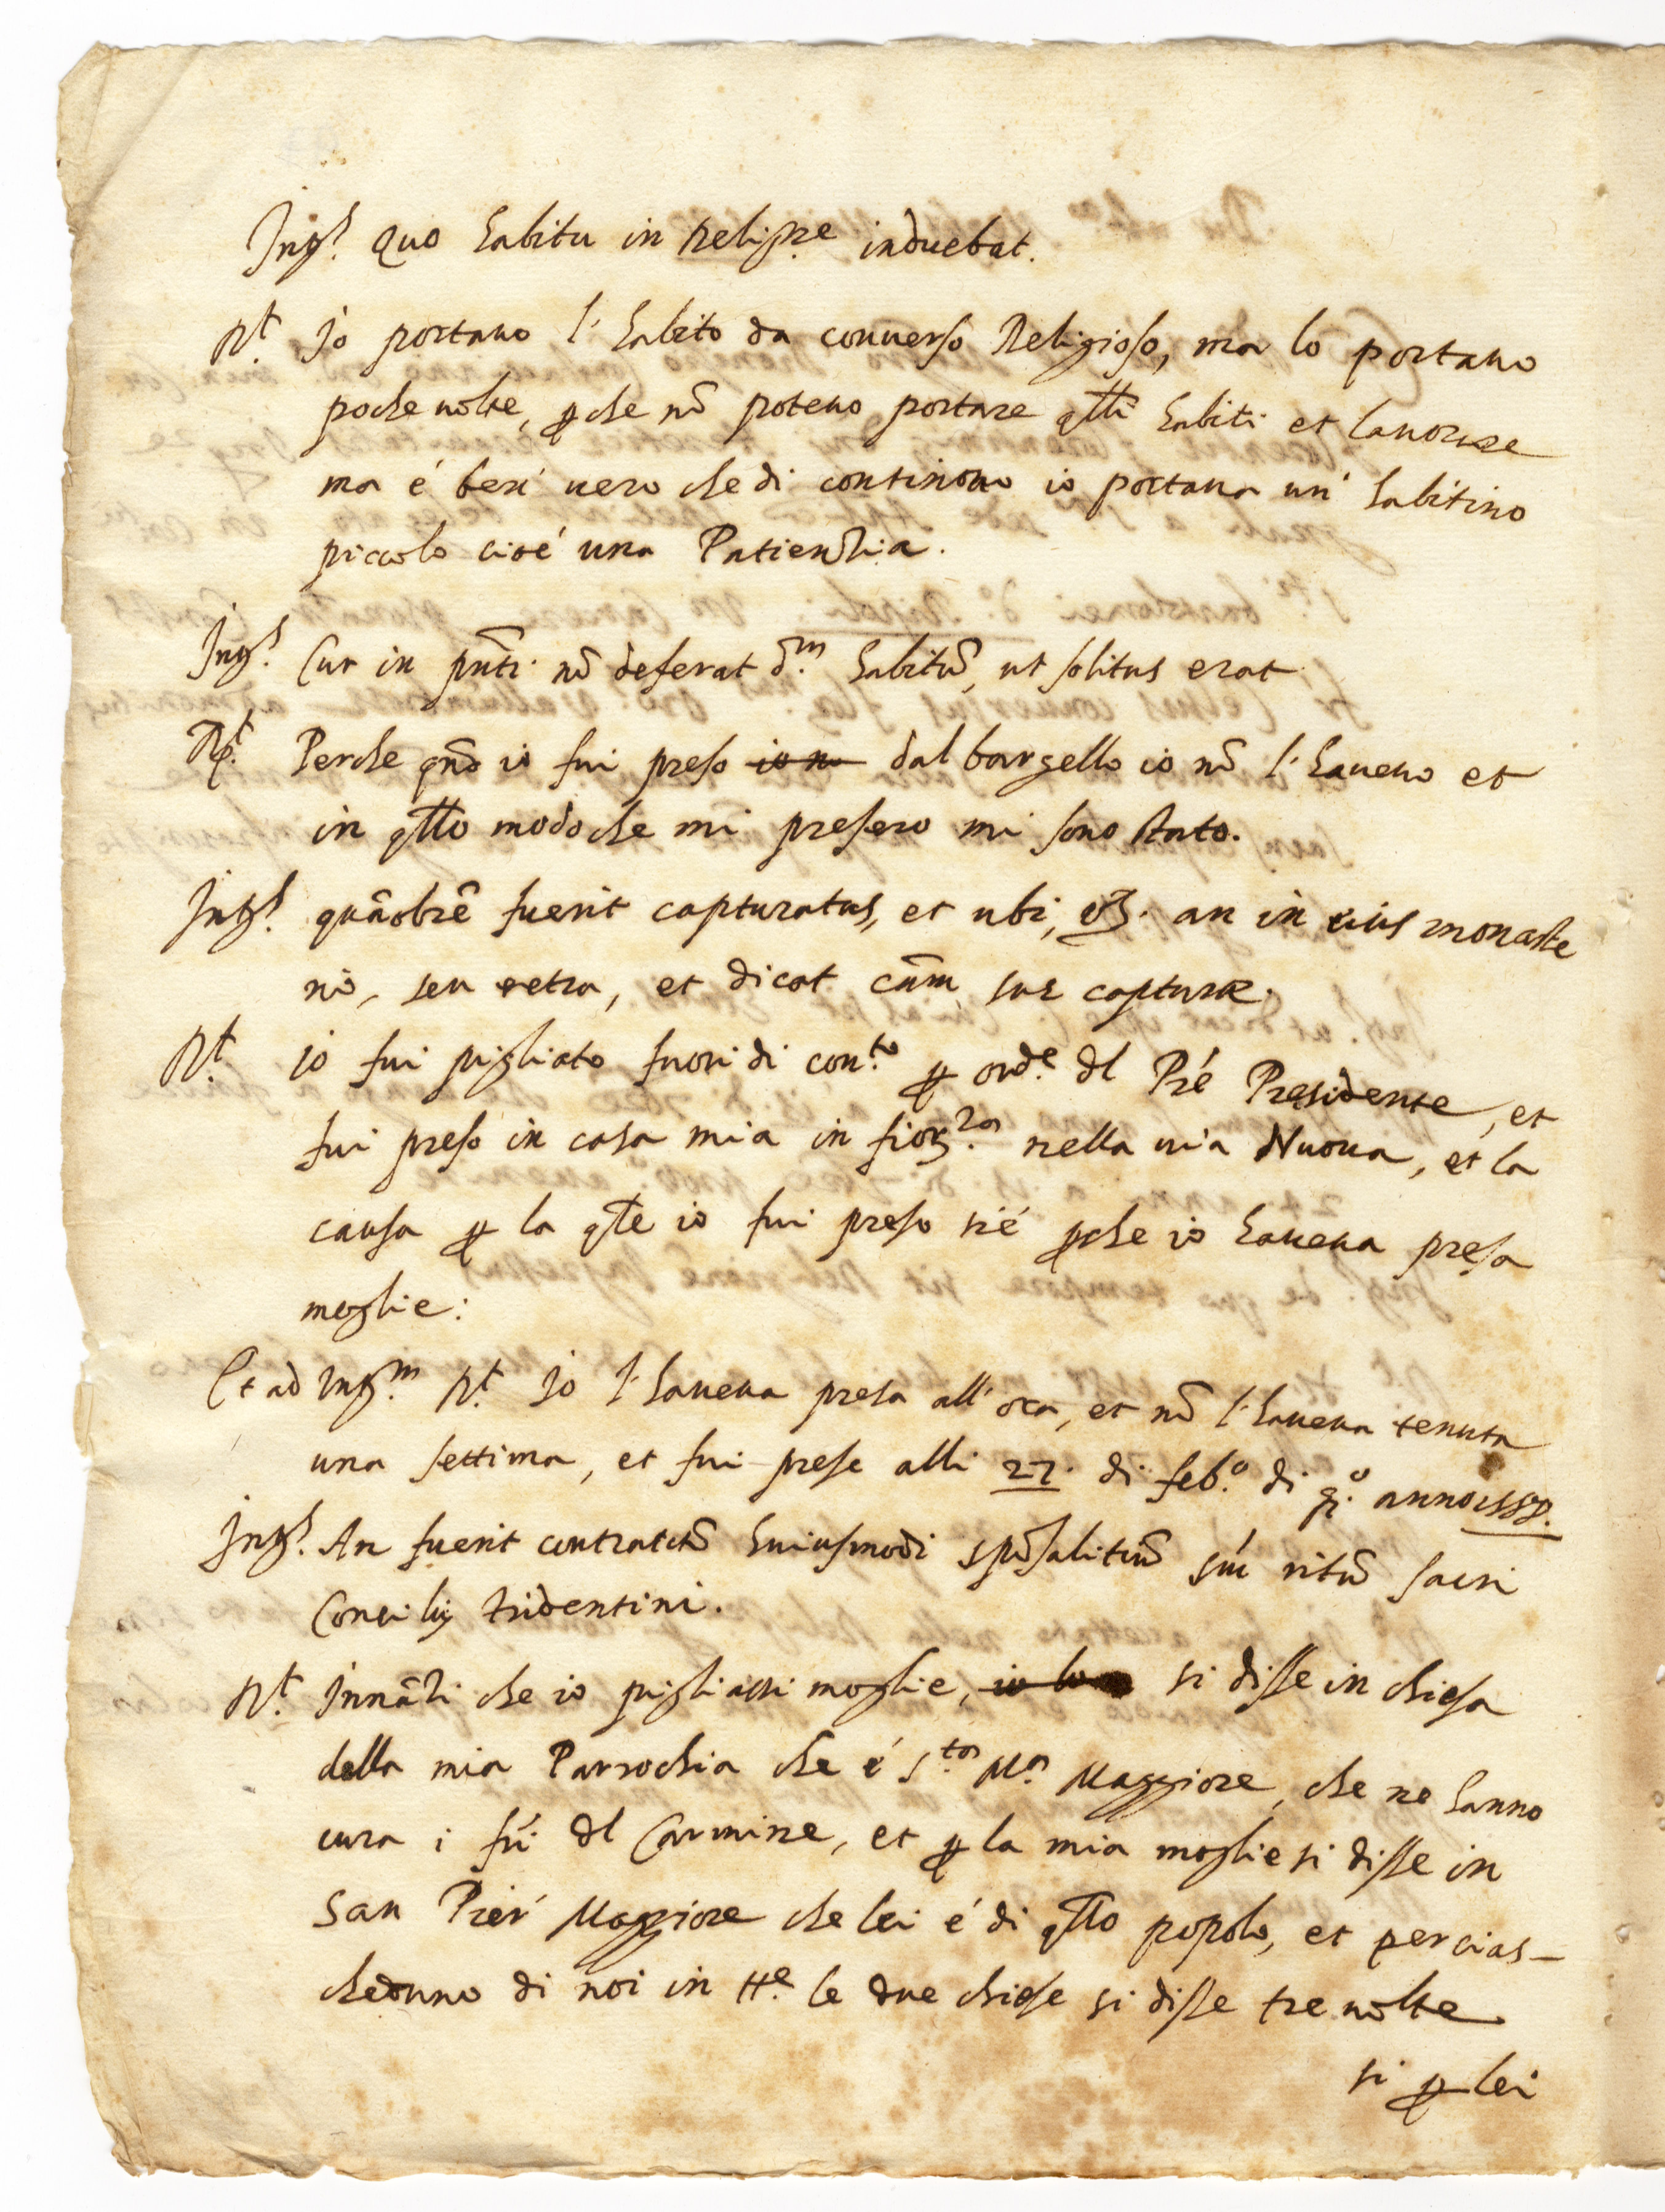 Ing.s quo habitu in Relig.ne induebat.
R.t Jo portauo l'habito da conuerso Religioso, ma lo portauo
poche uolte, p che nõ poteuo portare qlli habiti et lauorare
ma é ben' uero che di continouo io portaua un' habitino
piccolo cioé una Patientia.
Ing.s Cur in pñti nõ deferat d.m habitũ, ut solitus erat
R.t Perche qñdo io fui preso io no dal bargello io nõ l'haueuo et
in qllo modo che mi presero mi sono stato.
Int.s quãobrẽ fuerit capturatus, et ubi, uz. an in eius monaste
rio, seu extra, et dicat cãm suæ capturæ.
R.t io fui pigliato fuori di con.to p ord.e dl Pré Presidente, et
fui preso in casa mia in fior.za nella uia Nuoua, et la
causa p la qle io fui preso si é pche io haueua presa
moglie:
Et ad Int.m R.t Jo l'haueua presa all'ora, et nõ l'haueua tenuta
una settima, et fui prese alli 27. di feb.o di q.o anno
Int.s An fuerit contractũ huiusmodi spõsalitiũ iux ritũ sacri
Concilij tridentini.
R.t Innãzi che io pigliassi moglie, si disse in chiesa
della mia Parrochia che é S.ta M.a Maggiore, che ne hanno
cura i fri dl Carmine, et p la mia moglie si disse in
San Pier' Maggiore che lei é di qllo popolo, et percias-
cheduno di noi in tt.e le due chiese si disse tre uolte
si p lei